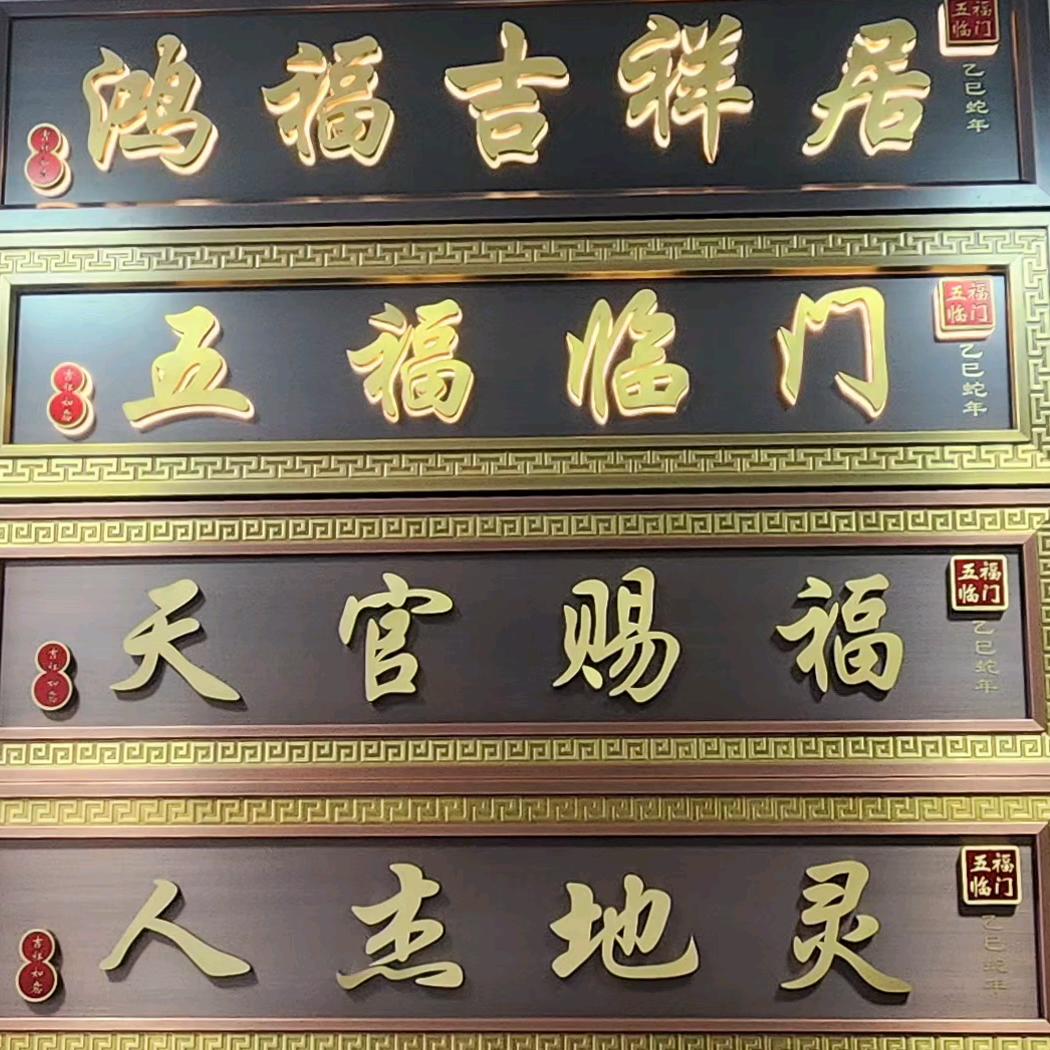 鸿福吉祥居
五福临门
乙巳蛇年
吉祥如意
五福临门
五福临门
乙巳蛇年
吉祥如意
天官赐福
五福临门
乙巳蛇年
吉祥如意
人杰地灵
五福临门
乙巳蛇年
吉祥如意